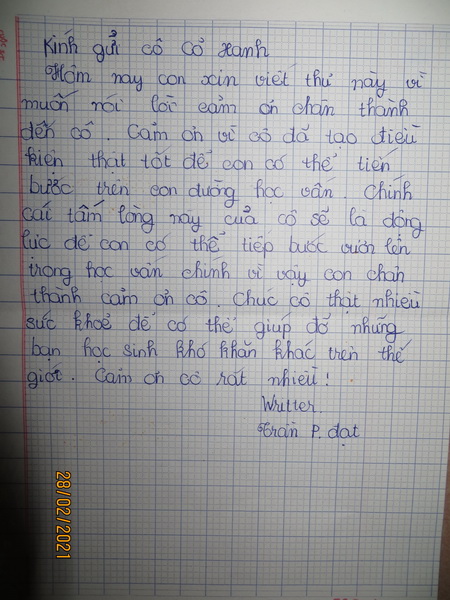 Kính gửi cô Cỏ Hanh
Hôm nay con xin viết thư này vì
muốn nói lời cảm ơn chân thành
đến cô. Cảm ơn vì cô đã tạo điều
kiện thật tốt để con có thể tiến
bước trên con đường học vấn. Chính
cái tấm lòng này của cô sẽ là động
lực để con có thể tiếp bước vươn lên
trong học vấn chính vì vậy con chân
thành cảm ơn cô. Chúc cô thật nhiều
sức khoẻ để cô thể giúp đỡ những
bạn học sinh khó khăn khác trên thế
giới. Cảm ơn cô rất nhiều!
Writter.
Trần P. đạt
28/02/2021